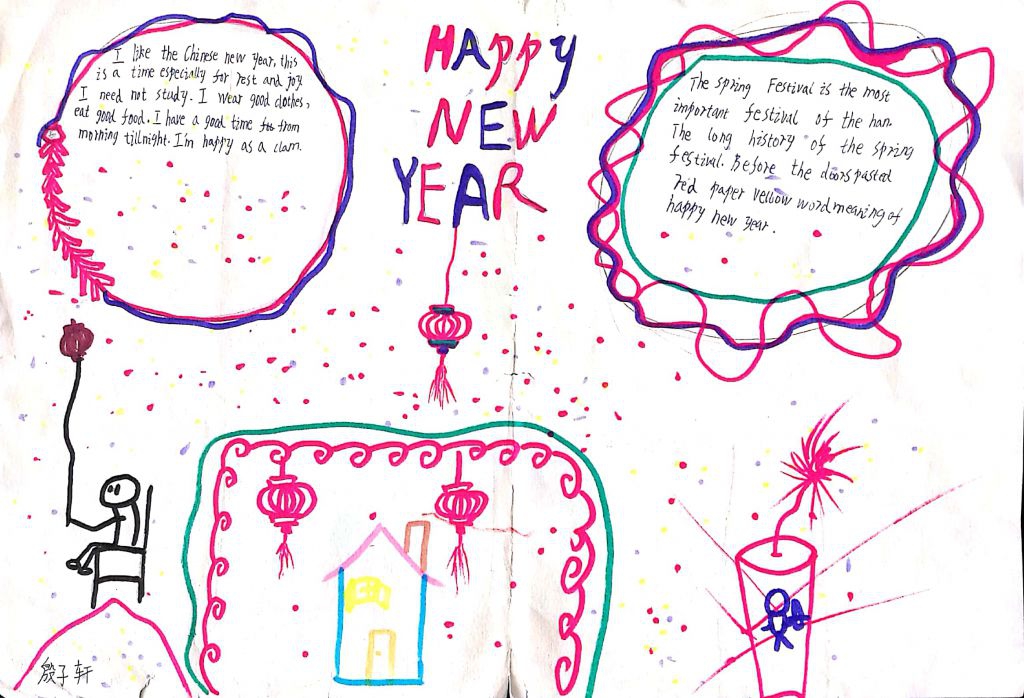 I like the Chinese new year, this
is a time especially for rest and joy
I need not study. I wear good clothes,
eat good food. I have a good time from
morning till night. I'm happy as a clam.
HAppy
NEW
YEAR
The spring Festival is the most
important festival of the han.
The long history of the spring
festival. Before the doors pasted
red paper yellow word meaning of
happy new year.
殷子轩